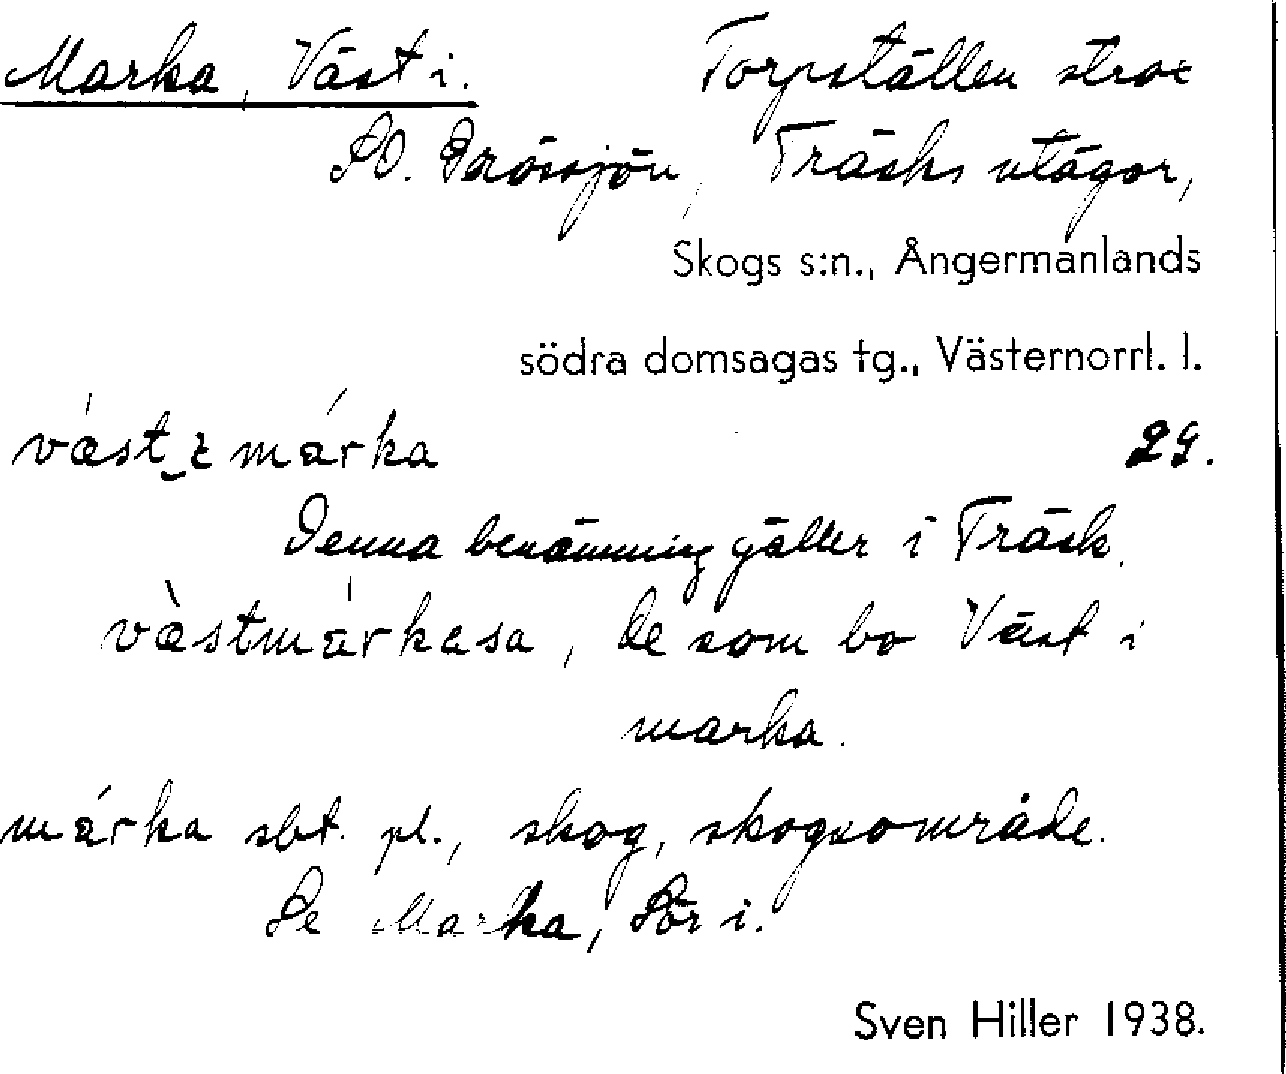 Marka, Väst i. Torpställen strax
SO. Drössjön, Träsks utägor,
Skogs s:n., Ångermanlands
södra domsagas tg., Västernorrl. l.
väst_i márka 29.
Denna benämning gäller i Träsk.
västmarkasa, de som bo Väst i
marka.
márka sbt. pl., skog, skogsområde.
Se Marka, Sör i.
Sven Hiller 1938.